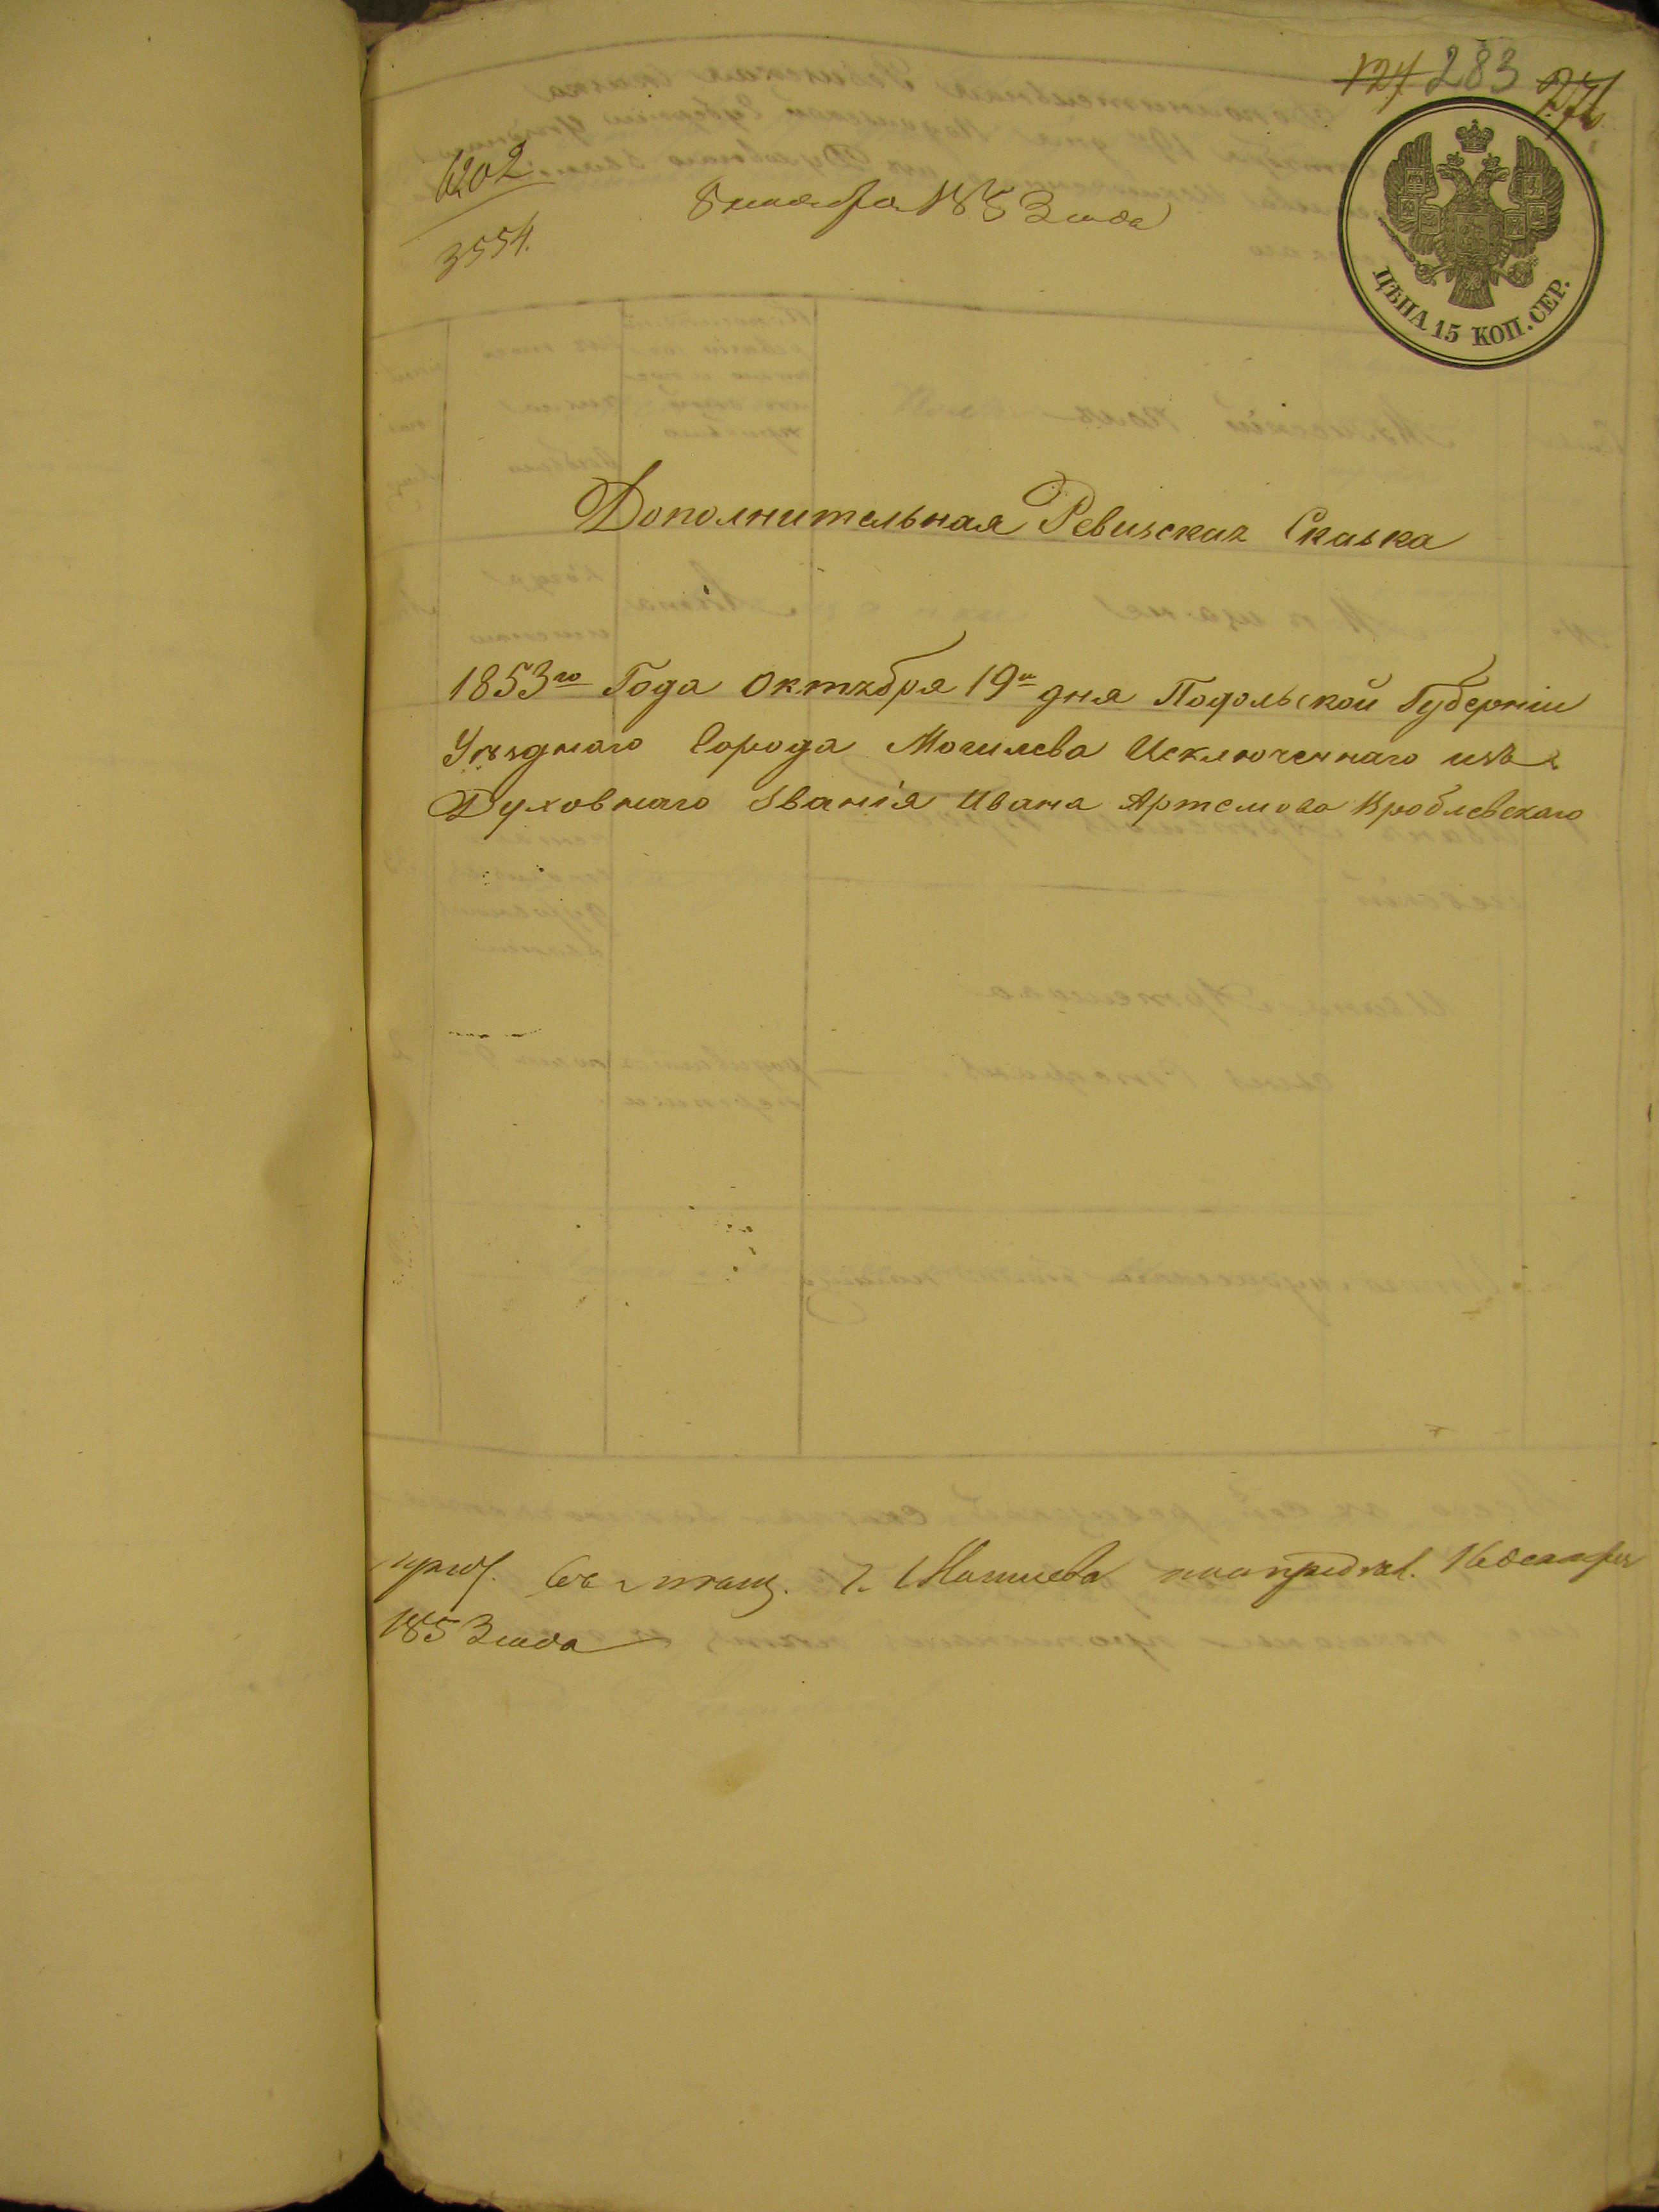 127 283 276
6202
3554.
8 ноября 1853 года
ЦѢНА 15 КОП. СЕР.
Дополнительная Ревизская Сказка
1853го Года Октября 19го дня Подольской Губерніи
Уѣзднаго Города Могилева Исключеннаго изъ
Духовнаго Званія Ивана Артемова Вроблевскаго
г. Могилева 16 декабря
1853 года